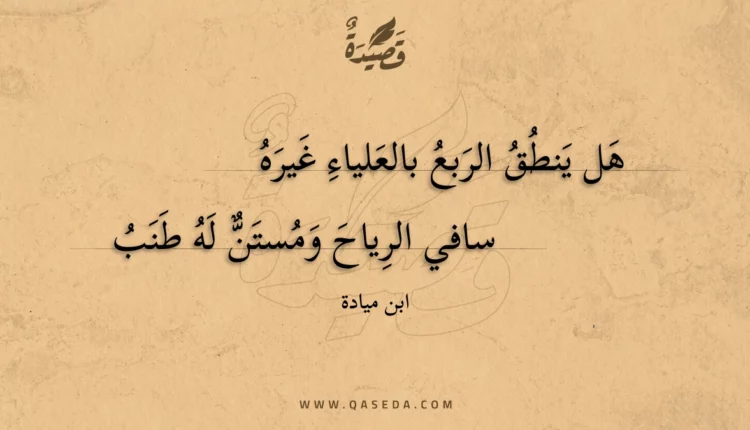 قَصِيْدَةٌ
هَل يَنطُقُ الرَبعُ بالعَلياءِ غَيرَهُ
سافي الرِياحَ وَمُستَنٌّ لَهُ طَنَبُ
ابن ميادة
WWW.QASEDA.COM